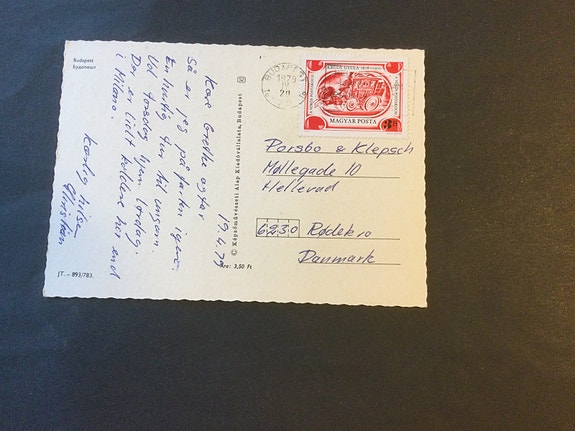 Budapest
Будапешт
19.4.79
Kære Grethe og far
Så er jeg på farten igen.
En hurtig tur til ungarn
Ud torsdag hjem lørdag.
Der er lidt koldere her end
i Milano.
Kærlig hilsen
Christian
JT.-893/783.
© Képzőművészeti Alap Kiadóvállalata, Budapest
Ára: 3,50 Ft
BUDAPEST
1979
20
KRÚDY GYULA 1878-1933
MAGYAR POSTA
Porsbo & Klepsch
Møllegade 10
Hellevad
6230 Rødekro
Danmark